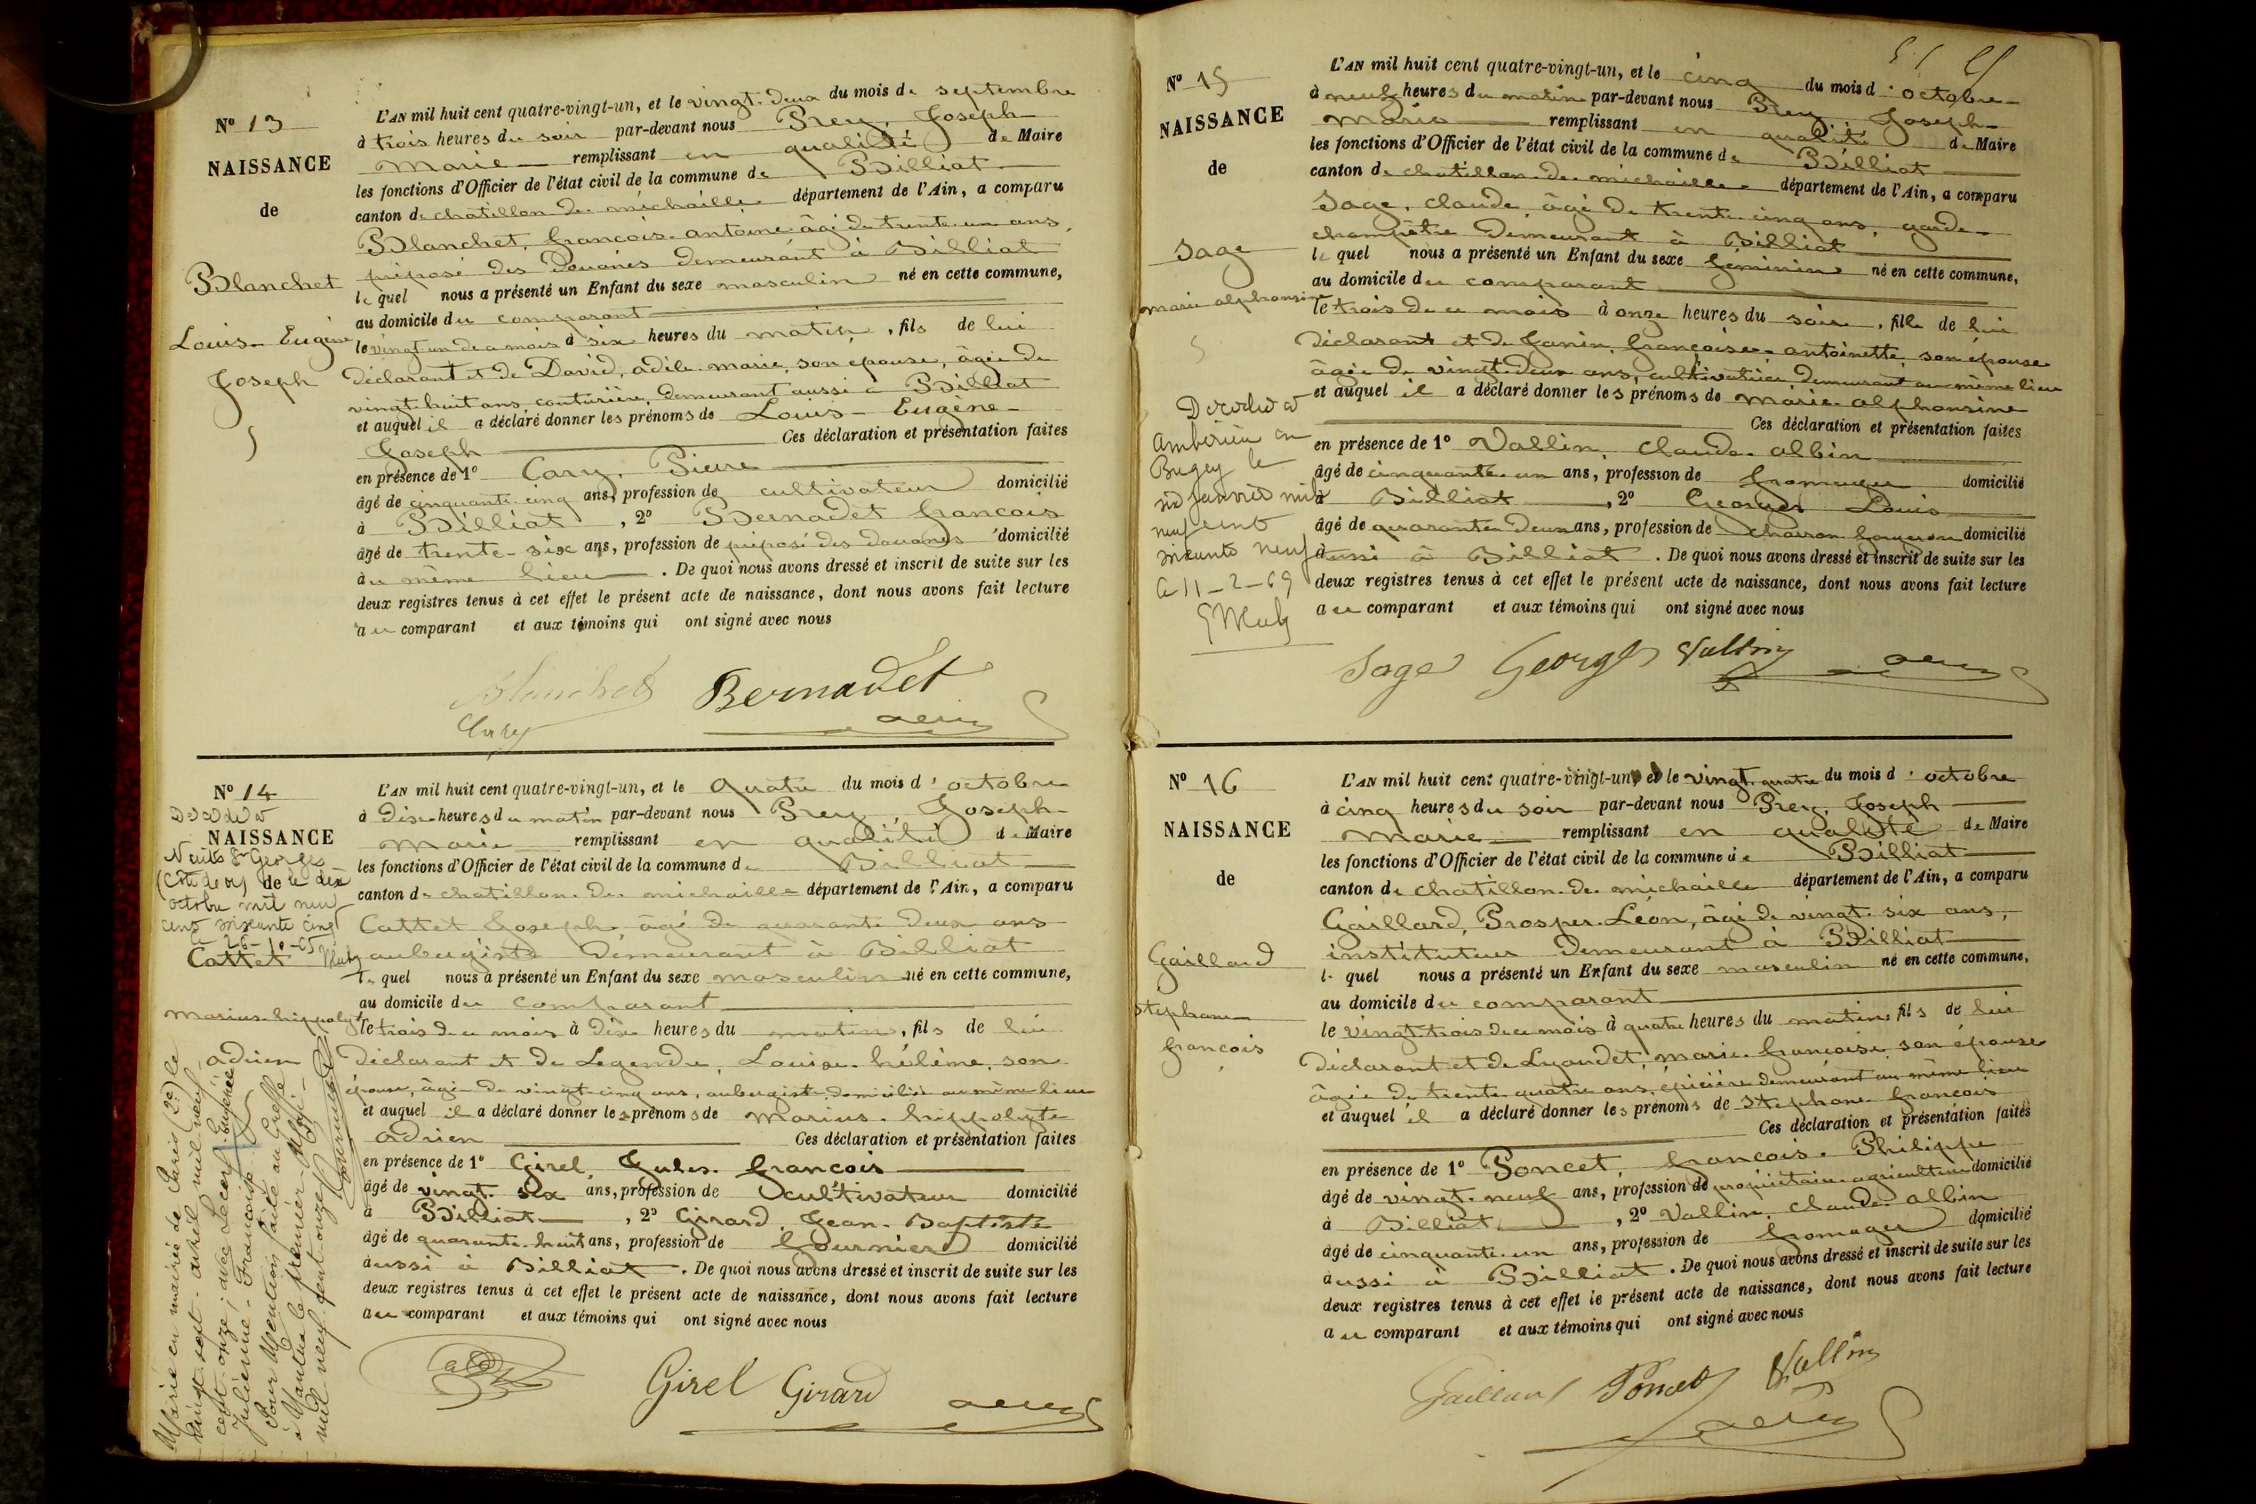 N° 13
NAISSANCE
de
Blanchet
Louis-Eugène
Joseph
L'AN mil huit cent quatre-vingt-un, et le vingt-deux du mois de septembre
à trois heures du soir par-devant nous Prey, Joseph
Marie remplissant en qualité de Maire
les fonctions d'Officier de l'état civil de la commune de Billiat
canton de chatillon-de-michaille département de l'Ain, a comparu
Blanchet, françois-antoine âgé de trente-un ans,
préposé des Douanes demeurant à Billiat
lequel nous a présenté un Enfant du sexe masculin né en cette commune,
au domicile du comparant
le vingt un de ce mois à six heures du matin, fils de lui
déclarant et de David, adile-marie, son épouse, âgée de
vingt-huit ans couturière, demeurant aussi à Billiat
et auquel il a déclaré donner les prénoms de Louis-Eugène-
Joseph Ces déclaration et présentation faites
en présence de 1° Cary, Pierre
âgé de cinquante-cinq ans, profession de cultivateur domicilié
à Billiat, 2° Bernadet françois
âgé de trente-six ans, profession de préposé des douanes domicilié
au même lieu. De quoi nous avons dressé et inscrit de suite sur les
deux registres tenus à cet effet le présent acte de naissance, dont nous avons fait lecture
au comparant et aux témoins qui ont signé avec nous
Blanchet Bernadet
Cary
N° 14
Décédé à
NAISSANCE
Nuits St Georges
(Côte d'or) de le dix
octobre mil neuf
cent soixante cinq
le 26-10-65
Cattet
marius-hippolyte
adrien
Marié en mairie de Paris (2e) le
vingt-sept-avril mil neuf-
cent-onze, avec Lecerf, Eugénie
Julienne-Françoise.
Pour Mention faite au Greffe
à Nantua le premier Mai
mil neuf cent onze
L'AN mil huit cent quatre-vingt-un, et le quatre du mois d'octobre
à dix heures du matin par-devant nous Prey, Joseph
Marie remplissant en qualité de Maire
les fonctions d'Officier de l'état civil de la commune de Billiat
canton de chatillon-de-michaille département de l'Ain, a comparu
Cattet Joseph, âgé de quarante-deux ans
aubergiste demeurant à Billiat
lequel nous a présenté un Enfant du sexe masculin né en cette commune,
au domicile du comparant
le trois de ce mois à dix heures du matin, fils de lui
déclarant et de Legendre, Louise-hélène, son
épouse, âgée de vingt-cinq ans, aubergiste domiciliée au même lieu
et auquel il a déclaré donner les prénoms de marius-hippolyte
adrien Ces déclaration et présentation faites
en présence de 1° Girel, Jules-françois
âgé de vingt-six ans, profession de cultivateur domicilié
à Billiat, 2° Girard, Jean-Baptiste
âgé de quarante-huit ans, profession de fournier domicilié
aussi à Billiat. De quoi nous avons dressé et inscrit de suite sur les
deux registres tenus à cet effet le présent acte de naissance, dont nous avons fait lecture
au comparant et aux témoins qui ont signé avec nous
Girel Girard
N° 15
NAISSANCE
de
Sage
marie alphonsine
Décédée à
Ambérieu en
Bugey le
six janvier mil
neuf cent
soixante neuf
le 11-2-69
L'AN mil huit cent quatre-vingt-un, et le cinq du mois d'octobre
à neuf heures du matin par-devant nous Prey, Joseph
Marie remplissant en qualité de Maire
les fonctions d'Officier de l'état civil de la commune de Billiat
canton de chatillon-de-michaille département de l'Ain, a comparu
Sage, Claude, âgé de trente-cinq ans, garde
champêtre demeurant à Billiat
lequel nous a présenté un Enfant du sexe féminin né en cette commune,
au domicile du comparant
le trois de ce mois à onze heures du soir, fille de lui
déclarant et de Janin, françoise-antoinette, son épouse
âgée de vingt-deux ans, cultivatrice demeurant au même lieu
et auquel il a déclaré donner les prénoms de marie-alphonsine
Ces déclaration et présentation faites
en présence de 1° Vallin, claude-albin
âgé de cinquante-un ans, profession de fromager domicilié
à Billiat, 2° Georges Louis
âgé de quarante-deux ans, profession de charron forgeron domicilié
aussi à Billiat. De quoi nous avons dressé et inscrit de suite sur les
deux registres tenus à cet effet le présent acte de naissance, dont nous avons fait lecture
au comparant et aux témoins qui ont signé avec nous
Sage Georges Vallin
N° 16
NAISSANCE
de
Gaillard
stephane
françois
L'AN mil huit cent quatre-vingt-un, et le vingt-quatre du mois d'octobre
à cinq heures du soir par-devant nous Prey, Joseph
Marie remplissant en qualité de Maire
les fonctions d'Officier de l'état civil de la commune de Billiat
canton de chatillon-de-michaille département de l'Ain, a comparu
Gaillard, Prosper-Léon, âgé de vingt-six ans,
instituteur demeurant à Billiat
lequel nous a présenté un Enfant du sexe masculin né en cette commune,
au domicile du comparant
le vingt-trois de ce mois à quatre heures du matin fils de lui
déclarant et de Lyaudet, marie-françoise, son épouse
âgée de trente-quatre ans, épicière demeurant au même lieu
et auquel il a déclaré donner les prénoms de stephane françois
Ces déclaration et présentation faites
en présence de 1° Poncet, françois-Philippe
âgé de vingt-neuf ans, profession de propriétaire-agriculteur domicilié
à Billiat, 2° Vallin, claude-albin
âgé de cinquante-un ans, profession de fromager domicilié
aussi à Billiat. De quoi nous avons dressé et inscrit de suite sur les
deux registres tenus à cet effet le présent acte de naissance, dont nous avons fait lecture
au comparant et aux témoins qui ont signé avec nous
Gaillard Poncet Vallin